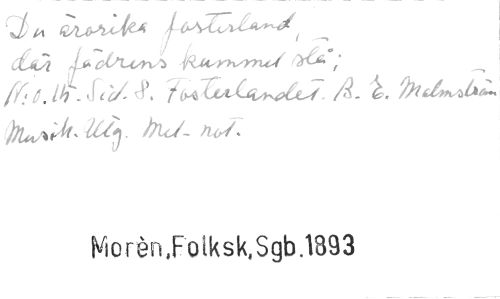 Du ärorika fosterland,
där fädrens kummel stå;
N:o. 15. Sid. 8. Fosterlandet. B. E. Malmström
Musik. Utg. Mel-not.
Morèn,Folksk,Sgb.1893